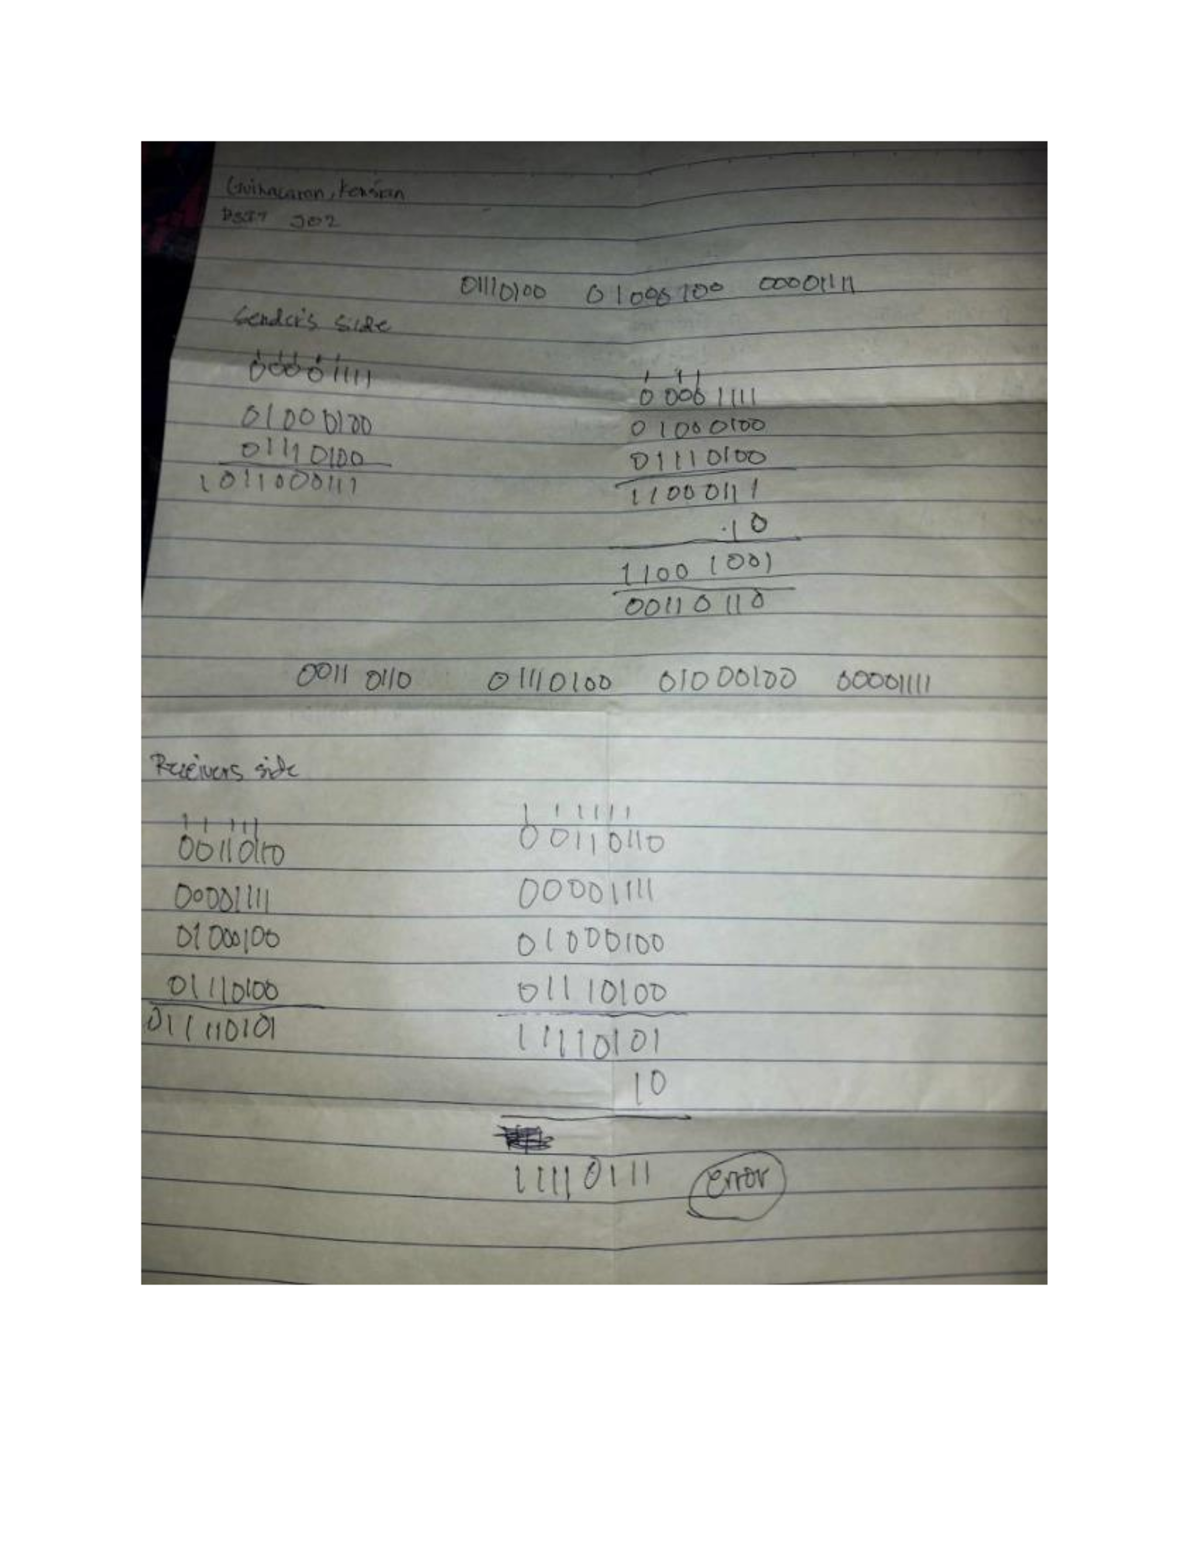 BSIT 302
01110100 01000100 00001111
Sender's side
1 1 1 1 1
00001111
01000100
01110100
1011000111
1 1 1
00001111
01000100
01110100
11000111
.10
11001001
00110110
0011 0110 01110100 01000100 00001111
Receivers side
1 1 1 1 1
00110110
00001111
01000100
01110100
011110101
1 1 1 1 1 1
00110110
00001111
01000100
01110100
11110101
10
11110111 error